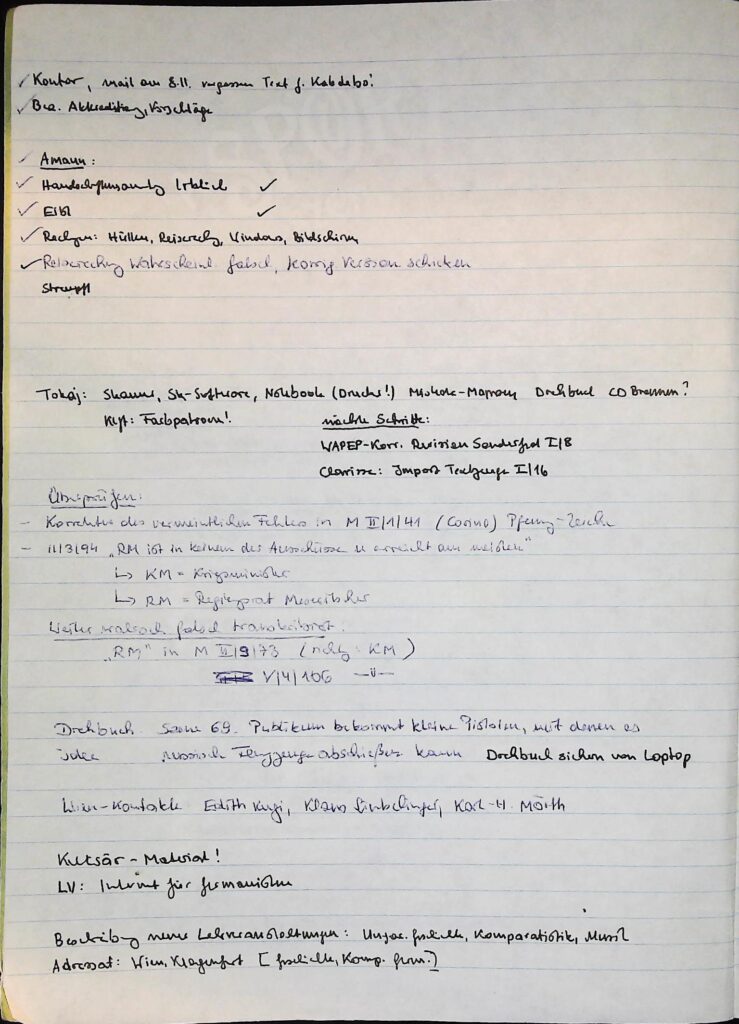 ✓ Kontor, mail am 8.11. vergessen Text f. Kabdebo!
✓ Bea. Akkreditierung, Vorschläge
✓ Amann:
✓ Handschriftensammlung ✓
✓ Eibl ✓
✓ Rechnungen: Hüllen, Reiserechg, Windows, Bildschirm
✓ Reiserechng wahrscheinl. falsch, Version schicken
Strumpfl
Tokaj: Scanner, Sk-Software, Notebook (Drucker!) Drehbuch CD Brennen?
Kift: Farbpatronen!
nächste Schritte:
WAPEP-Korr. Revision Sonderfond I/8
Clarisse: Import I/16
Überprüfen:
– Korrektur des vermeintlichen Fehlers in M II/1/41 (Corino)
– II/3/94 „RM ist in keinem der Ausschüsse u erreicht am meisten"
↳ KM = Kriegsminister
↳ RM = Regierungsrat Meseritscher
Weiter falsch transkribiert:
„RM" in M II/9/73 (richtg: KM)
V/4/106 —"—
Drehbuch Szene 69. Publikum bekommt kleine Pistolen, mit denen es
Idee russisch Flugzeuge abschießen kann Drehbuch sichern von Laptop
Wien-Kontakte Edith, Klaus, Karl-H. Mörth
Kulcsár-Material!
LV: Internet für Germanisten
Beschreibung neuer Lehrveranstaltungen: Ungar. Geschichte, Komparatistik, Musil
Adressat: Wien, Klagenfurt [Geschichte, Komp. Germ.]